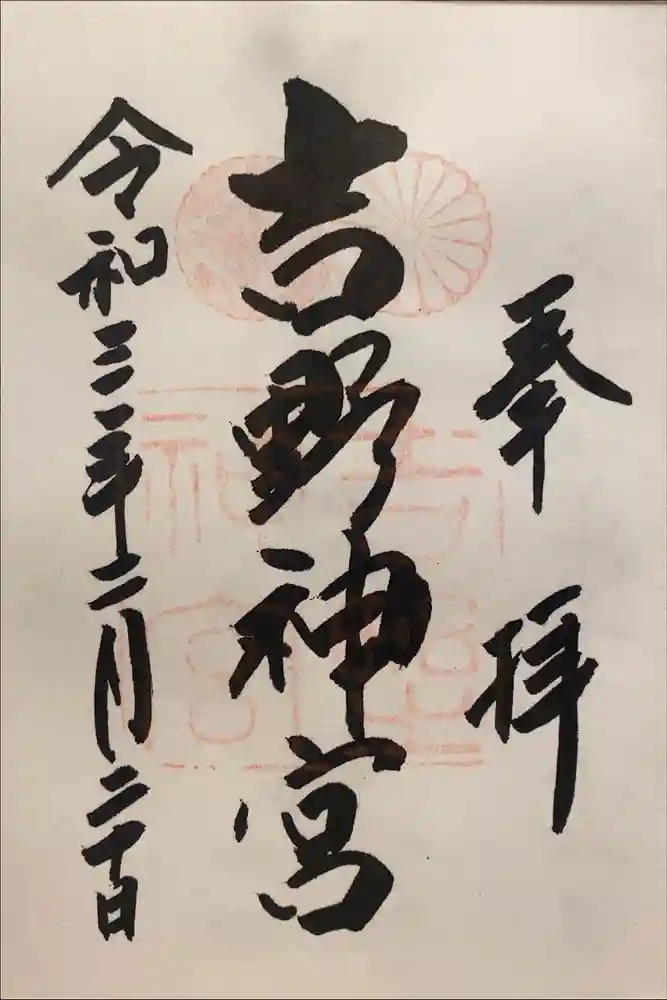 奉拝
吉野神宮
令和三年二月二十日